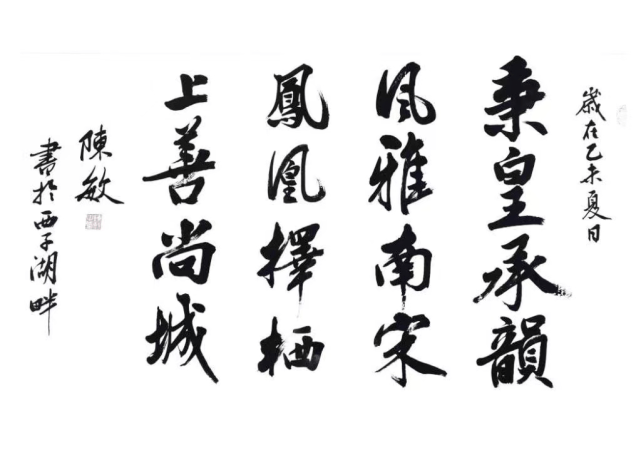 歲在乙未夏日
秉皇承韻
風雅南宋
鳳凰擇栖
上善尚城
陳敏
書於西子湖畔